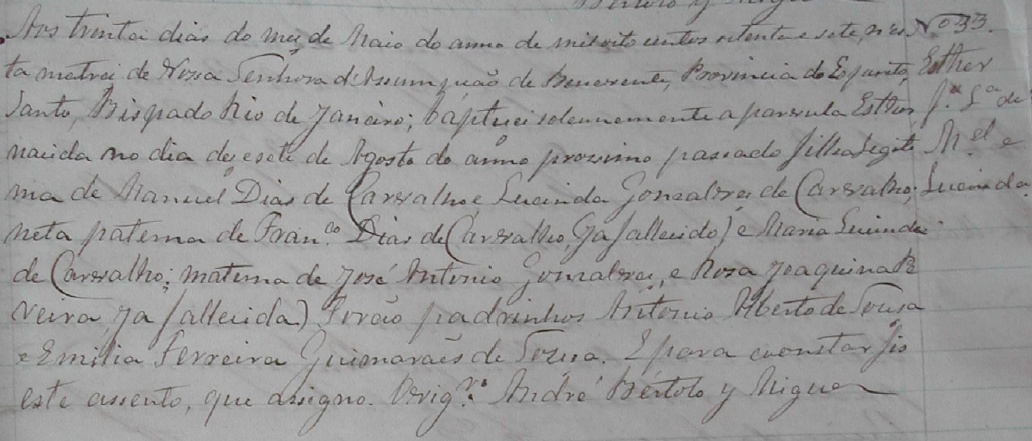 Aos trinta dias do mez de Maio do anno de mil oito centos setenta e sete, nes Nº 33.
ta matriz de Nossa Senhora d'Assumpção de Benevente, Provincia do Espirito Esther
Santo, Bispado Rio de Janeiro; baptisei solemnemente a parvula Esther, fª Lª de
nacida no dia desesete de Agosto do anno proximo passado filha legiti Mel e
ma de Manuel Dias de Carvalho, e Lucinda Gonsalves de Carvalho; Lucinda
neta paterna de Franco Dias de Carvalho, (ja fallecido) e Maria Lucinda
de Carvalho; materna de José Antonio Gonsalves, e Rosa Joaquina Pe
reira, ja fallecida) Forão padrinhos Antonio Alberto de Sousa
e Emilia Ferreira Guimarães de Sousa. E para constar fis
este assento, que assigno. O Vigrº André Bértolo y Miguez